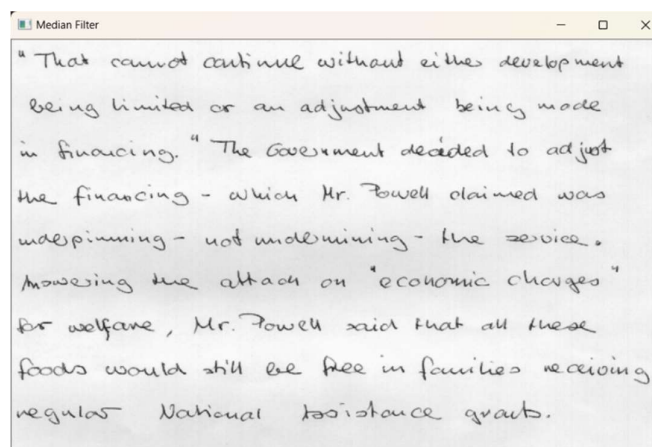 Median Filter
"That cannot continue without either development
being limited or an adjustment being made
in financing." The Government decided to adjust
the financing - which Mr. Powell claimed was
underpinning - not undermining - the service.
Answering the attack on "economic charges"
for welfare, Mr. Powell said that all these
foods would still be free in families receiving
regular National Assistance grants.